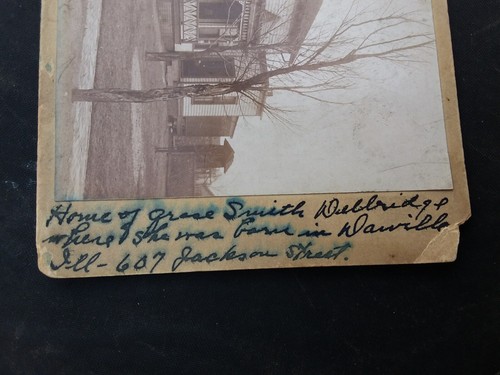 Home of Grace Smith Webbridge
where she was born in Danville
Ill - 607 Jackson Street.